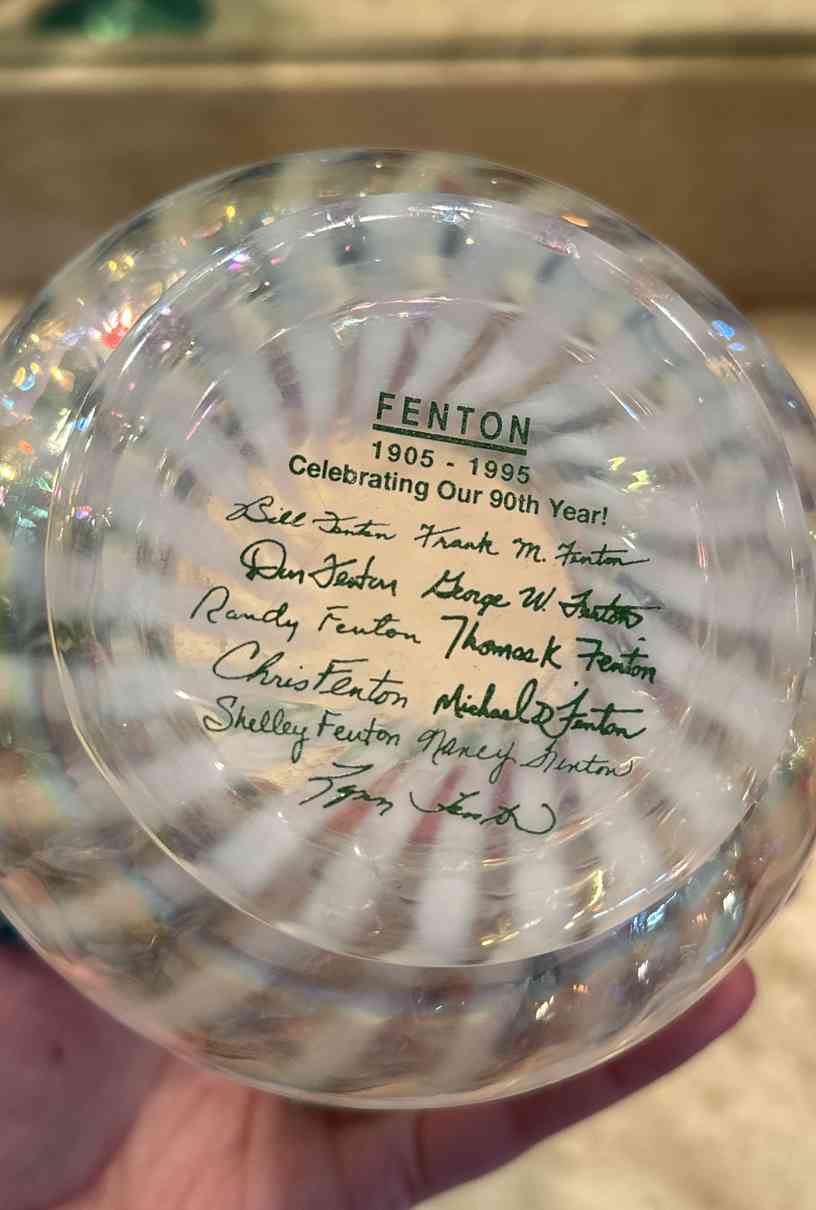 FENTON
1905 - 1995
Celebrating Our 90th Year!
Bill Fenton Frank M. Fenton
Don Fenton George W. Fenton
Randy Fenton Thomas K Fenton
Chris Fenton Michael D Fenton
Shelley Fenton Nancy Fenton
Lynn Fenton